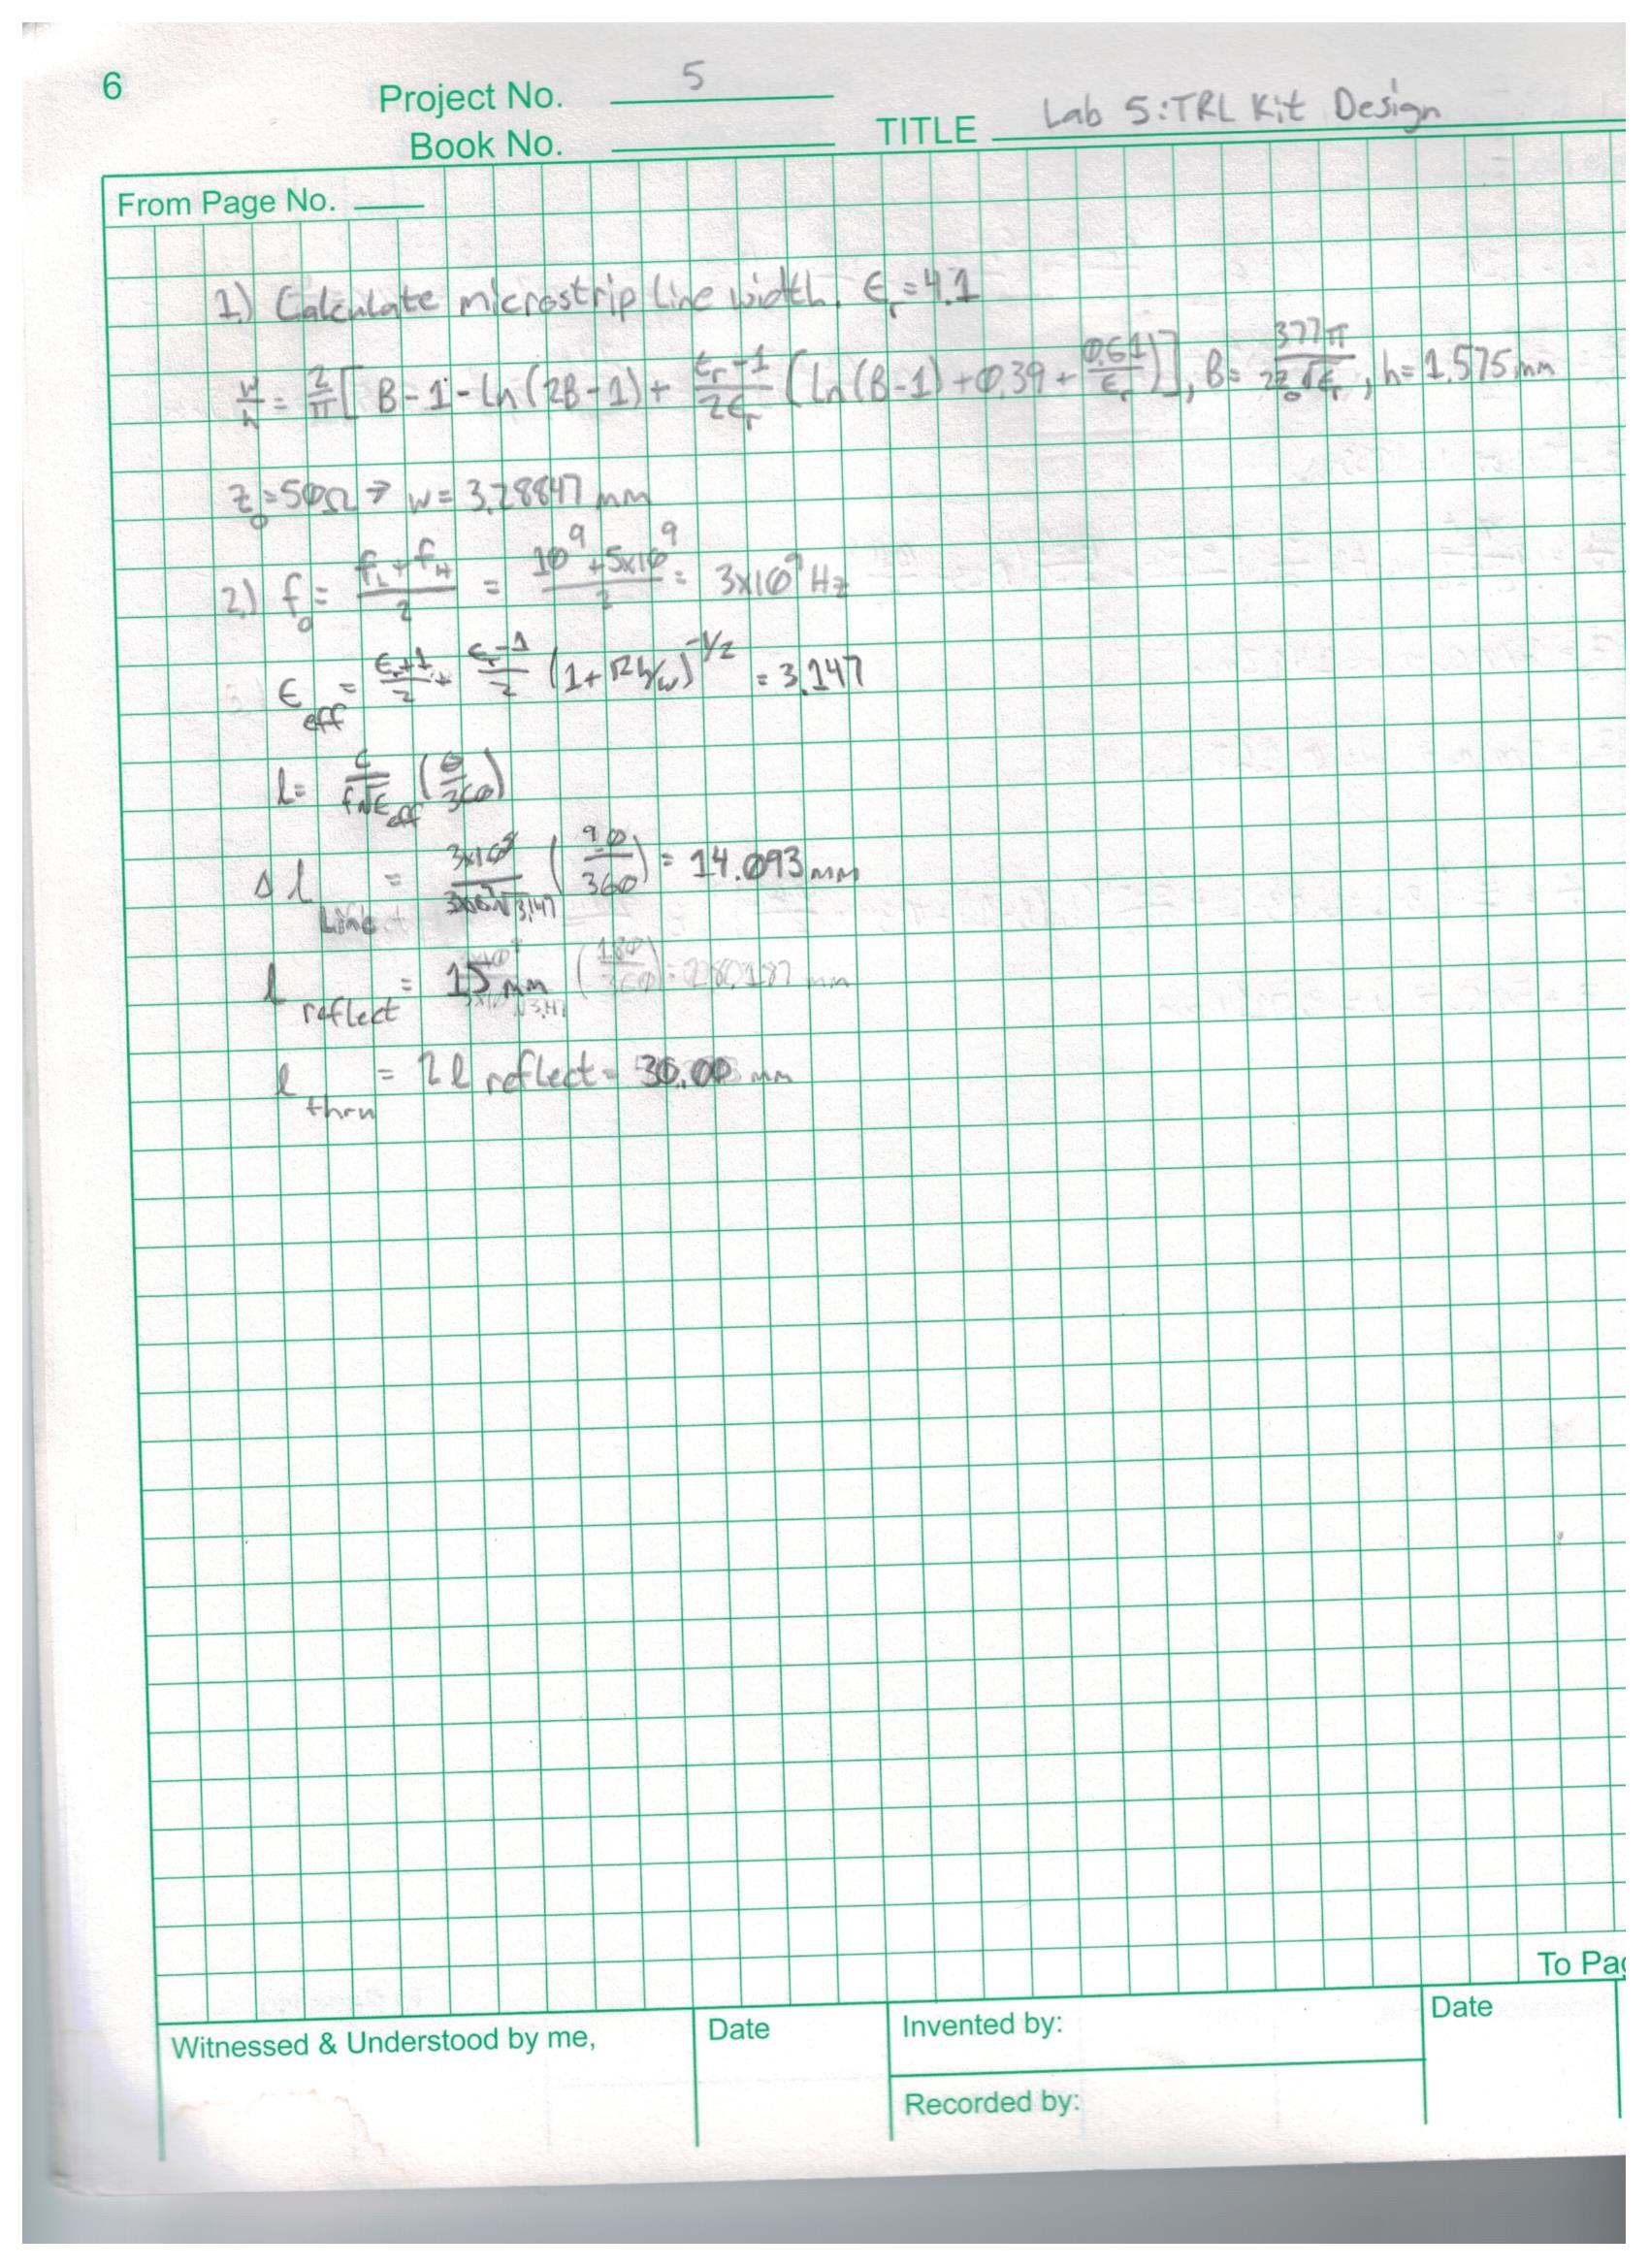 6
Project No. 5
Book No.
TITLE Lab 5: TRL Kit Design
From Page No.
1.) Calculate microstrip line width. ϵr = 4.1
w/h = 2/π [ B-1-ln(2B-1) + (ϵr-1)/(2ϵr) (ln(B-1)+0.39+ 0.61/ϵr) ], B = 377π/(2Z0√ϵr), h = 1.575 mm
Z0 = 50Ω → w = 3.28847 mm
2.) f0 = (fL + fH)/2 = (10^9 + 5x10^9)/2 = 3x10^9 Hz
ϵeff = (ϵr+1)/2 + (ϵr-1)/2 (1+12h/w)^-1/2 = 3.147
l = c/(f√ϵeff) (θ/360)
Δl line = 3x10^8/(3x10^9√3.147) (90/360) = 14.093 mm
l reflect = 15 mm
l thru = 2l reflect = 30.00 mm
To Pag
Witnessed & Understood by me,
Date
Invented by:
Date
Recorded by: